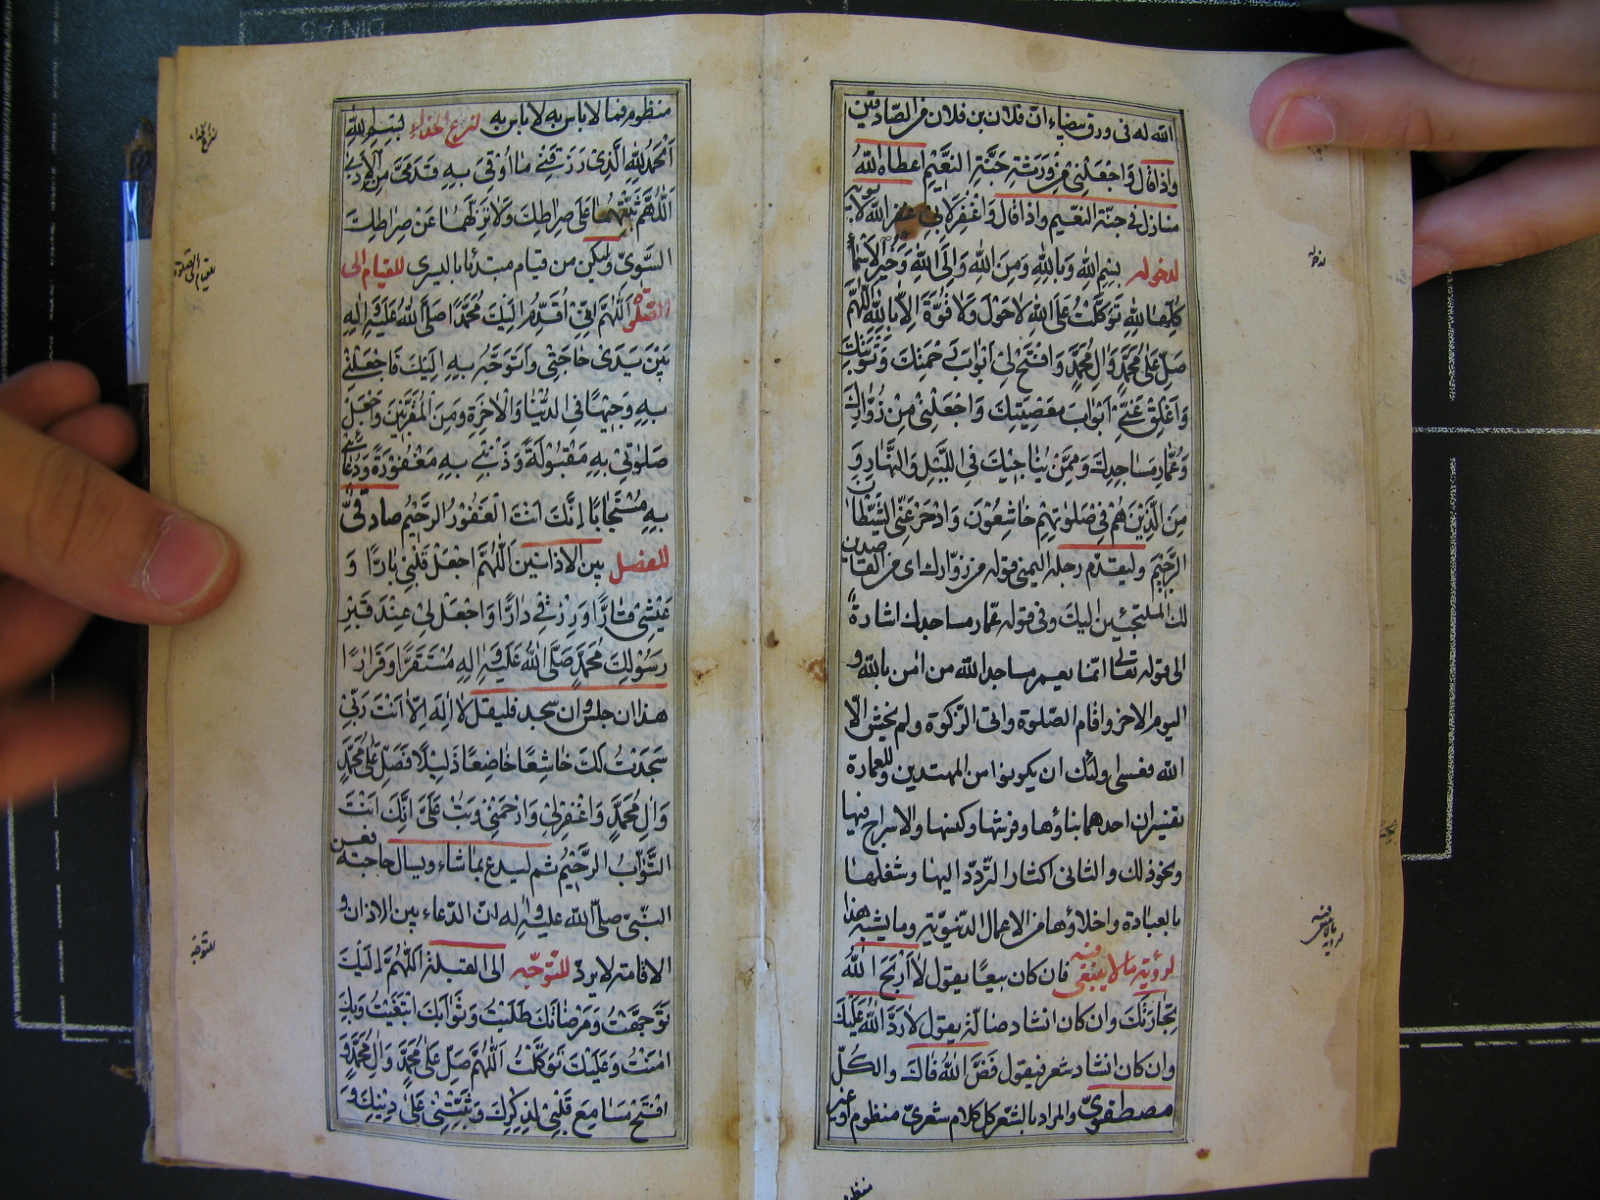 الله له فى ورق بيضاء ان فلان بن فلان من الصادقين
واذا قال وَاجْعَلْنِي مِنْ وَرَثَةِ جَنَّةِ النَّعِيْمِ اعطاه الله
منازل فى جنة النعيم واذا قال وَاغْفِرْ لِأَبِي غفر الله لابويه
لدخوله بِسْمِ اللهِ وَبِاللهِ وَمِنَ اللهِ وَاِلَى اللهِ وَخَيْرُ الْاَسْمَاءِ
كُلِّهَا لِلّٰهِ تَوَكَّلْتُ عَلَى اللهِ لَا حَوْلَ وَلَا قُوَّةَ اِلَّا بِاللهِ اَللّٰهُمَّ
صَلِّ عَلَى مُحَمَّدٍ وَاٰلِ مُحَمَّدٍ وَافْتَحْ لِيْ اَبْوَابَ رَحْمَتِكَ وَتَوْبَتِكَ
وَاَغْلِقْ عَنِّيْ اَبْوَابَ مَعْصِيَتِكَ وَاجْعَلْنِيْ مِنْ زُوَّارِكَ
وَعُمَّارِ مَسَاجِدِكَ وَمِمَّنْ يُنَاجِيْكَ فِي اللَّيْلِ وَالنَّهَارِ وَ
مِنَ الَّذِيْنَ هُمْ فِيْ صَلٰوتِهِمْ خَاشِعُوْنَ وَادْحَرْ عَنِّي الشَّيْطَانَ
الرَّجِيْمَ وليقدم رجله اليمنى قوله من زوارك اى من القاصدين
لك الملتجئين اليك وفى قوله عمار مساجدك اشارة
الى قوله تعالى انما يعمر مساجد الله من امن بالله و
اليوم الاخر واقام الصلوة واتى الزكوة ولم يخش الا
الله فعسى اولئك ان يكونوا من المهتدين وللعمارة
تفسيران احدهما بناؤها وفرشها وكنسها والاسراج فيها
ونحو ذلك والثانى اكثار التردد اليها وشغلها
بالعبادة واخلاؤها من الاعمال الدنيوية وما يشبه هذا
لرؤية ما لا ينبغى فيه فان كان بيعا يقول لَا اَرْبَحَ اللهُ
تِجَارَتَكَ وان كان انشاد ضالة يقول لَا رَدَّ اللهُ عَلَيْكَ
وان كان انشاد شعر فيقول فَضَّ اللهُ فَاكَ والكل
مصطفوى والمراد بالشعر كل كلام شعرى منظوم او غير
منظوم
لدخوله
لرؤية ما لا ينبغى فيه
منظوم فما لا باس به لا باس به لنزع الحذاء بِسْمِ اللهِ
اَلْحَمْدُ لِلّٰهِ الَّذِيْ رَزَقَنِيْ مَا اُوْقِيْ بِهِ قَدَمَيَّ مِنَ الْاَذٰى
اَللّٰهُمَّ ثَبِّتْهُمَا عَلَى صِرَاطِكَ وَلَا تُزِلَّهُمَا عَنْ صِرَاطِكَ
السَّوِيِّ وليكن من قيام مبتدئا باليسرى للقيام الى
الصلوة اَللّٰهُمَّ اِنِّيْ اُقَدِّمُ اِلَيْكَ مُحَمَّدًا صَلَّى اللهُ عَلَيْهِ وَاٰلِهِ
بَيْنَ يَدَيْ حَاجَتِيْ وَاَتَوَجَّهُ بِهِ اِلَيْكَ فَاجْعَلْنِيْ
بِهِ وَجِيْهًا فِي الدُّنْيَا وَالْاٰخِرَةِ وَمِنَ الْمُقَرَّبِيْنَ وَاجْعَلْ
صَلٰوتِيْ بِهِ مَقْبُوْلَةً وَذَنْبِيْ بِهِ مَغْفُوْرَةً وَدُعَائِيْ
بِهِ مُسْتَجَابًا اِنَّكَ اَنْتَ الْغَفُوْرُ الرَّحِيْمُ صادقى
للفصل بين الاذانين اَللّٰهُمَّ اجْعَلْ قَلْبِيْ بَارًّا وَ
عَيْشِيْ قَارًّا وَرِزْقِيْ دَارًّا وَاجْعَلْ لِيْ عِنْدَ قَبْرِ
رَسُوْلِكَ مُحَمَّدٍ صَلَّى اللهُ عَلَيْهِ وَاٰلِهِ مُسْتَقَرًّا وَقَرَارًا
هذا ان جلس وان سجد فليقل لَا اِلٰهَ اِلَّا اَنْتَ رَبِّيْ
سَجَدْتُ لَكَ خَاشِعًا خَاضِعًا ذَلِيْلًا فَصَلِّ عَلَى مُحَمَّدٍ
وَاٰلِ مُحَمَّدٍ وَاغْفِرْ لِيْ وَارْحَمْنِيْ وَتُبْ عَلَيَّ اِنَّكَ اَنْتَ
التَّوَّابُ الرَّحِيْمُ ثم ليدع بما شاء ويسال حاجته فعن
النبى صلى الله عليه واله ان الدعاء بين الاذان و
الاقامة لا يرد للتوجه الى القبلة اَللّٰهُمَّ اِلَيْكَ
تَوَجَّهْتُ وَمَرْضَاتَكَ طَلَبْتُ وَثَوَابَكَ ابْتَغَيْتُ وَبِكَ
اٰمَنْتُ وَعَلَيْكَ تَوَكَّلْتُ اَللّٰهُمَّ صَلِّ عَلَى مُحَمَّدٍ وَاٰلِ مُحَمَّدٍ وَ
افْتَحْ مَسَامِعَ قَلْبِيْ لِذِكْرِكَ وَثَبِّتْنِيْ عَلَى دِيْنِكَ وَ
لنزع الحذاء
للقيام الى الصلوة
للتوجه